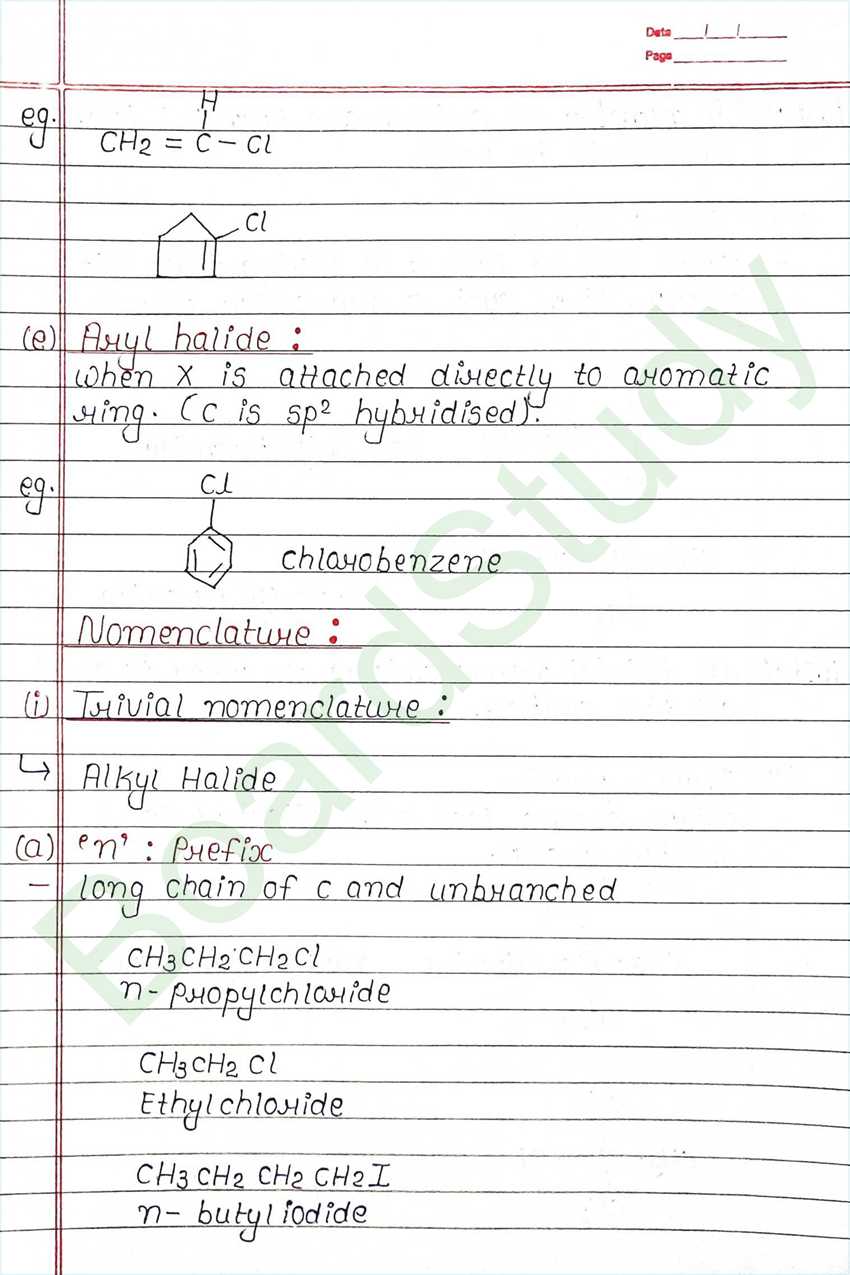 Date __/__/__
Page
eg.
H
CH2 = C - Cl
Cl
(e) Aryl halide :
when X is attached directly to aromatic
ring. (C is sp² hybridised).
eg.
Cl
chlorobenzene
Nomenclature :
(i) Trivial nomenclature :
↳ Alkyl Halide
(a) 'n' : Prefix
- long chain of c and unbranched
CH3CH2CH2Cl
n-propylchloride
CH3CH2Cl
Ethylchloride
CH3CH2CH2CH2I
n-butyliodide
BoardStudy